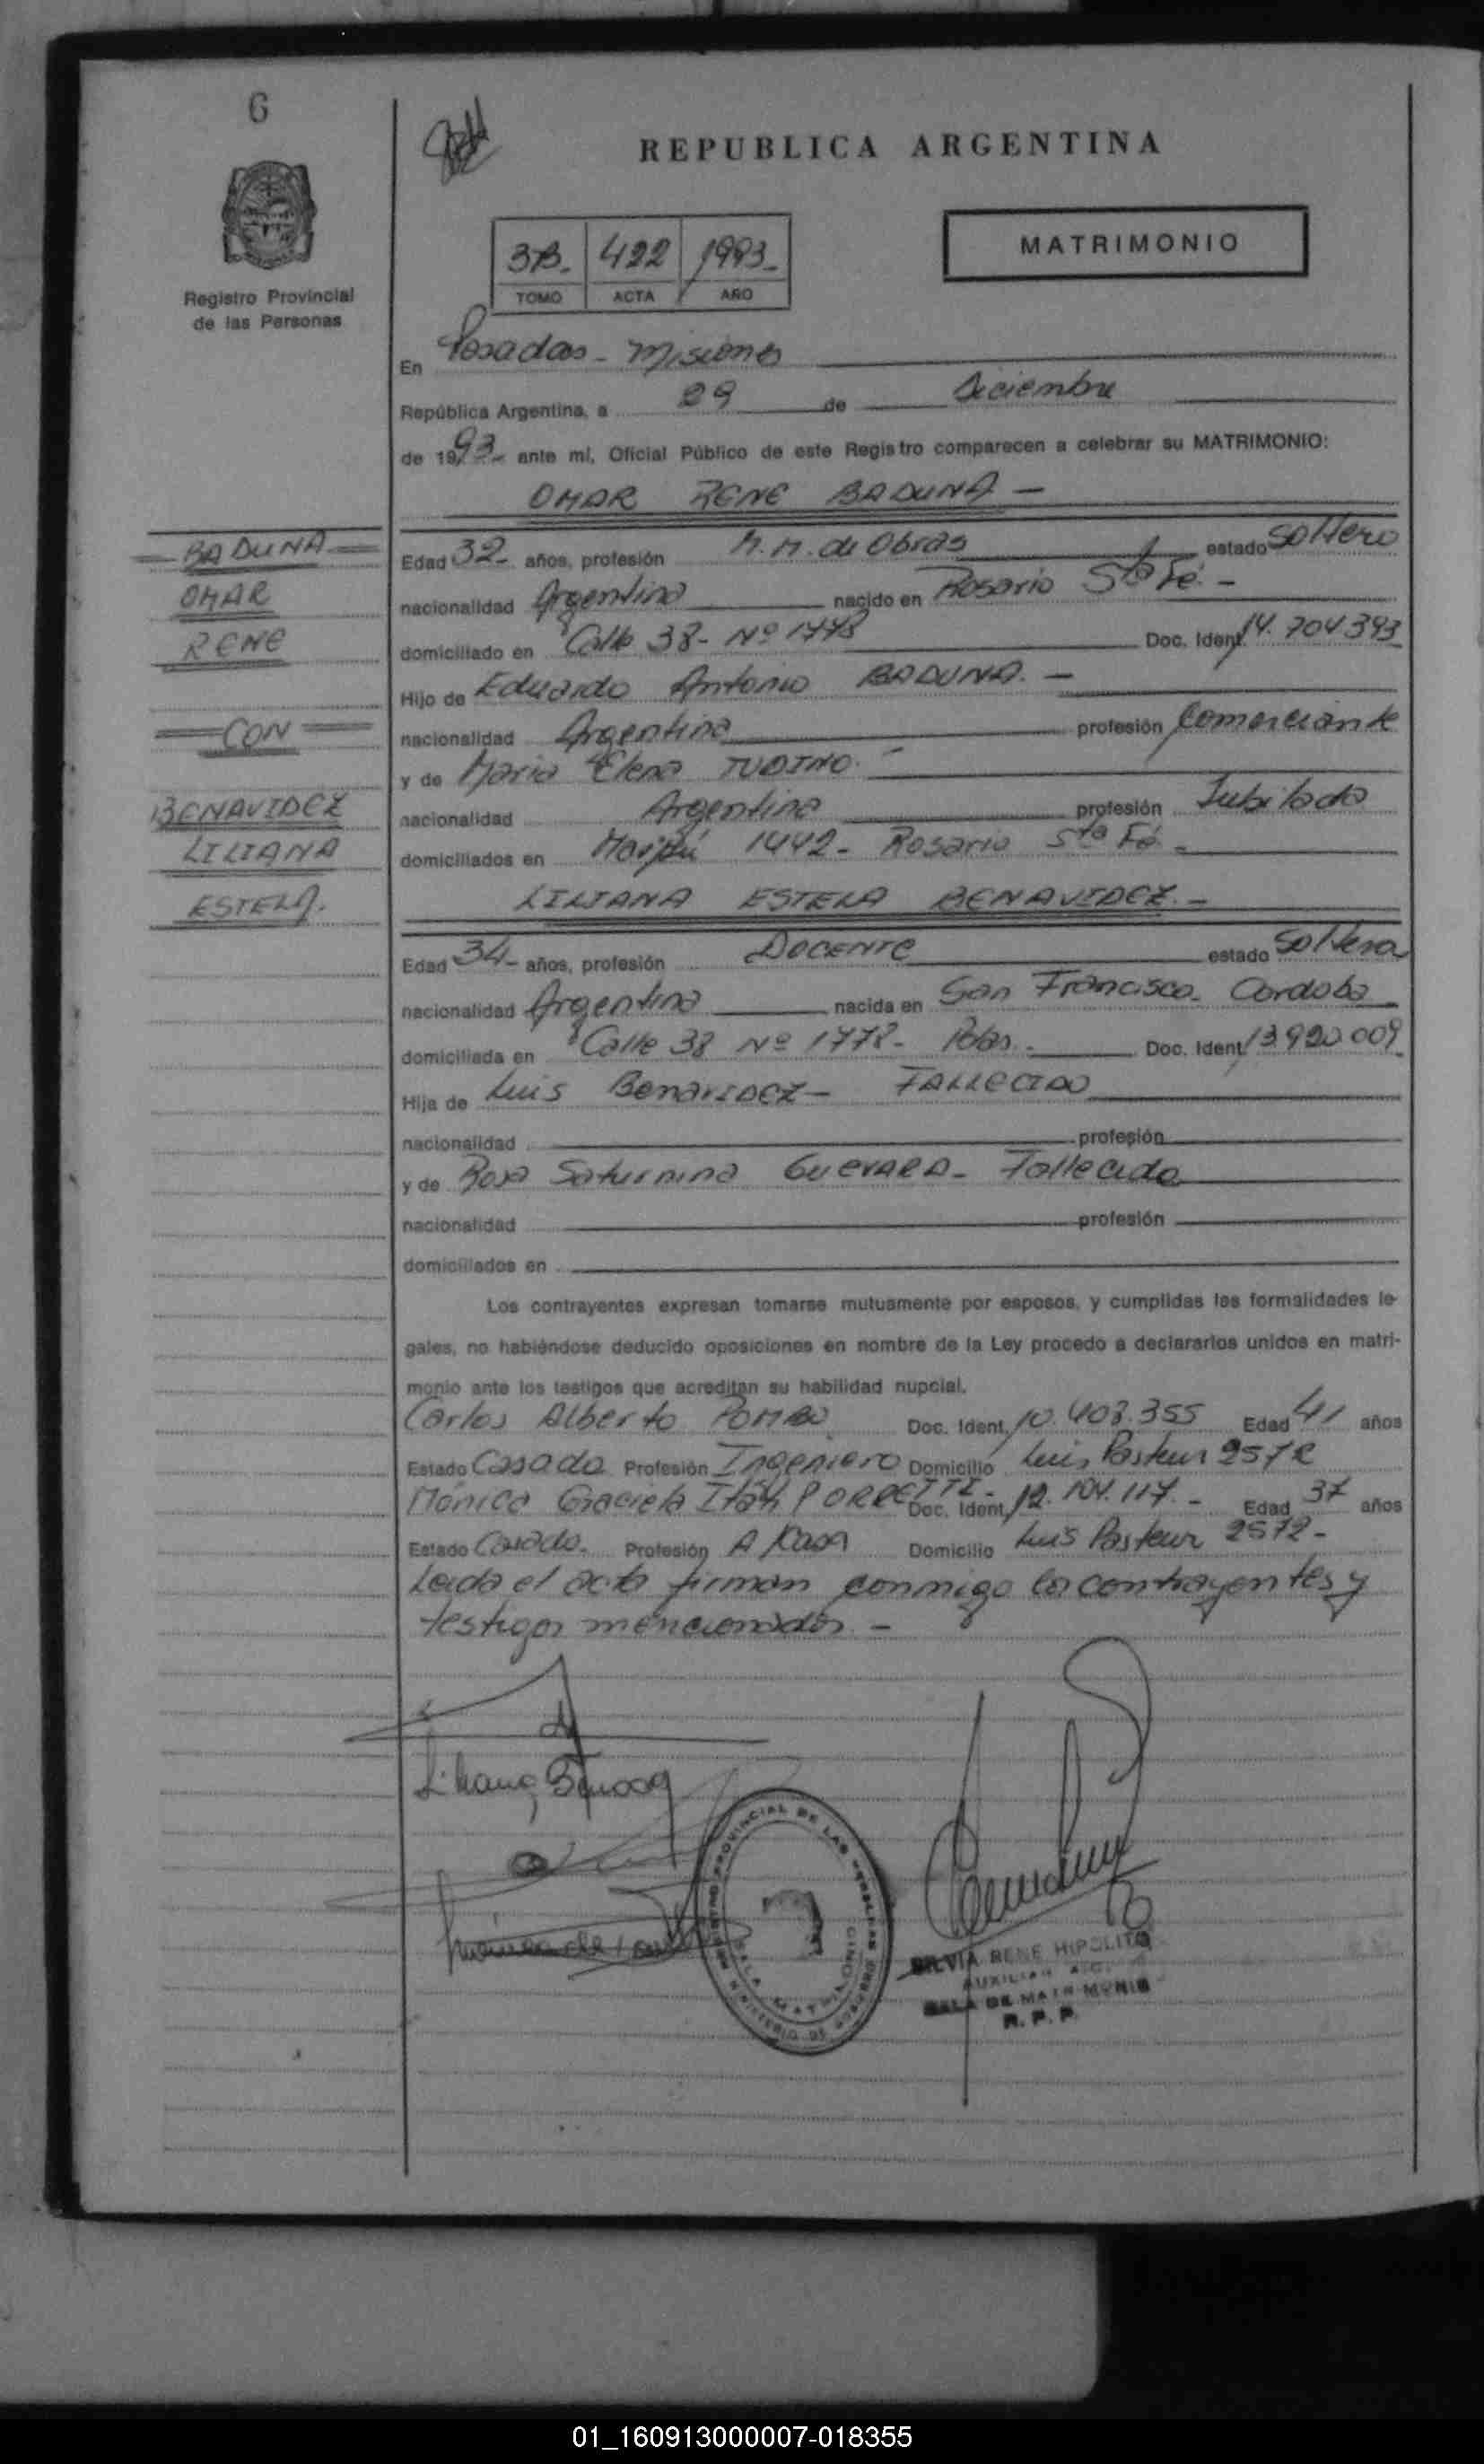 6
REPUBLICA ARGENTINA
Registro Provincial
de las Personas
3B. 422 1993.
TOMO ACTA AÑO
MATRIMONIO
En Posadas - Misiones
República Argentina, a 29 de Diciembre
de 1993 ante mí, Oficial Público de este Registro comparecen a celebrar su MATRIMONIO:
OMAR RENE BADUNA -
BADUNA
OMAR
RENE
CON
BENAVIDEZ
LILIANA
ESTELA.
Edad 32 años, profesión M.M. de Obras estado Soltero
nacionalidad Argentina nacido en Rosario Sta Fé. -
domiciliado en Calle 38 - Nº 1778 Doc. Ident. 14.704393
Hijo de Eduardo Antonio BADUNA. -
nacionalidad Argentina profesión Comerciante
y de Maria Elena TUDINO. -
nacionalidad Argentina profesión Jubilada
domiciliados en Maipú 1442 - Rosario Sta Fé -
LILIANA ESTELA BENAVIDEZ. -
Edad 34 - años, profesión DOCENTE estado Soltera
nacionalidad Argentina nacida en San Francisco - Cordoba
domiciliada en Calle 38 Nº 1778 - Pdas. Doc. Ident. 13.920.009
Hija de Luis BenavIDEZ - FALLECIDO
nacionalidad profesión
y de Rosa Saturnina GUEVARA - Fallecida
nacionalidad profesión
domiciliados en
Los contrayentes expresan tomarse mutuamente por esposos, y cumplidas las formalidades le-
gales, no habiéndose deducido oposiciones en nombre de la Ley procedo a declararlos unidos en matri-
monio ante los testigos que acreditan su habilidad nupcial.
Carlos Alberto POMBO Doc. Ident. 10.403.355 Edad 41 años
Estado Casado Profesión Ingeniero Domicilio Luis Pasteur 2572
Mónica Graciela Itatí PORRETTI - Doc. Ident. 12.104.117. - Edad 37 años
Estado Casada. Profesión A Kasa Domicilio Luis Pasteur 2572 -
Leida el acta firman conmigo los contrayentes y
testigos mencionados. -
Liliana
REGISTRO PROVINCIAL DE LAS PERSONAS
MINISTERIO DE GOBIERNO
SALA MATRIMONIO
SILVIA RENE HIPOLITO
AUXILIAR
SALA DE MATRIMONIO
R. P. P.
01_160913000007-018355